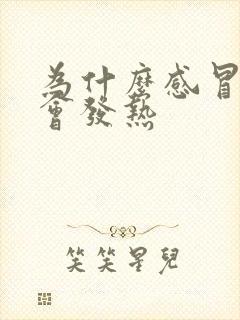 為什麼感冒
會發熱
笑笑星兒